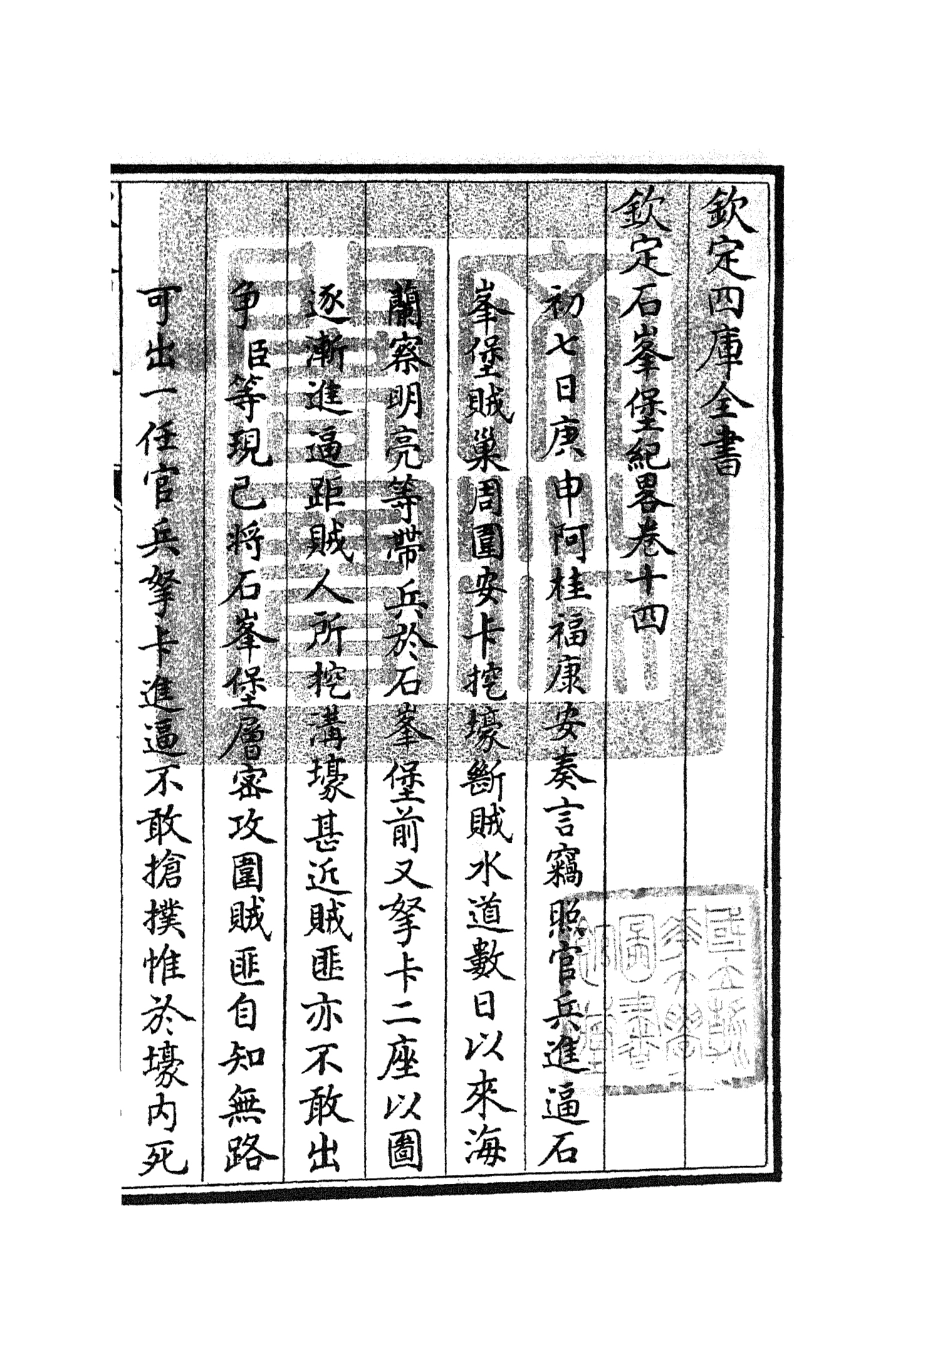 欽定四庫全書
欽定石峯堡紀畧卷十四
初七日庚申阿桂福康安奏言竊照官兵進逼石
峯堡賊巢周圍安卡挖壕斷賊水道數日以來海
蘭察明亮等帶兵於石峯堡前又拏卡二座以圖
逐漸進逼距賊人所挖溝壕甚近賊匪亦不敢出
争臣等現已將石峯堡層密攻圍賊匪自知無路
可出一任官兵拏卡進逼不敢搶撲惟於壕内死